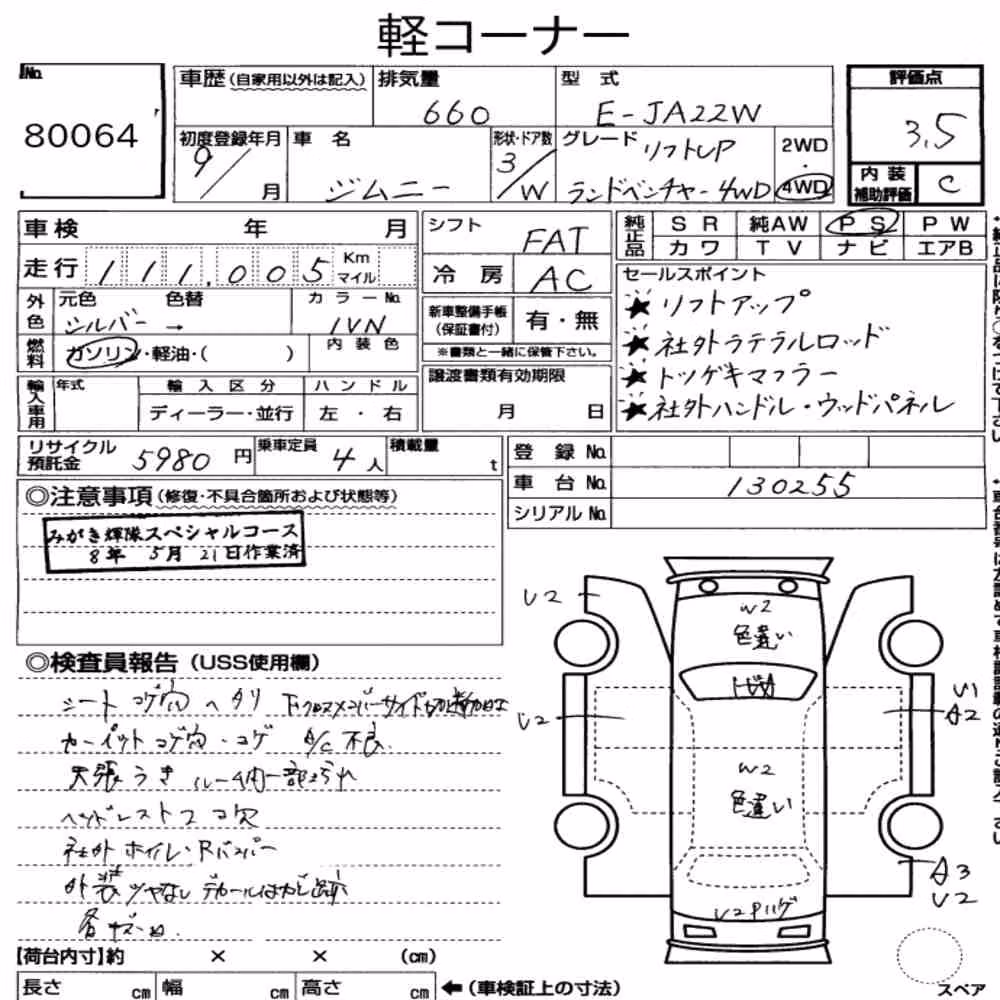 軽コーナー
No.
80064
車歴(自家用以外は記入)
排気量
660
型 式
E-JA22W
初度登録年月
9/ 月
車 名
ジムニー
形状・ドア数
3/W
グレード リフトUP
ランドベンチャー 4WD
2WD
・
4WD
評価点
3.5
内装
補助評価
C
車検 年 月
走行 111,005 Km マイル
外色
元色 色替
シルバー →
カラーNo.
1VN
燃料
ガソリン・軽油・( )
内装色
輸入車用
年式
輸入区分
ディーラー・並行
ハンドル
左 ・ 右
シフト
FAT
冷房
AC
新車整備手帳
(保証書付)
有・無
※書類と一緒に保管下さい。
譲渡書類有効期限
月 日
純正品
SR 純AW PS PW
カワ TV ナビ エアB
セールスポイント
★リフトアップ
★社外ラテラルロッド
★トツゲキマフラー
★社外ハンドル・ウッドパネル
リサイクル
預託金
5980 円
乗車定員
4 人
積載量
t
登録No.
車台No. 130255
シリアルNo.
◎注意事項(修復・不具合箇所および状態等)
みがき輝隊スペシャルコース
8年 5月 21日作業済
◎検査員報告(USS使用欄)
シート コゲ穴 ヘタリ 下クロスメンバーサイド切断加工
カーペットコゲ穴・コゲ A/C不良
天張うき ルーム内一部
ヘッドレスト2コ欠
社外ホイル・Rバンパー
外装ツヤなし デカールはがし跡
各キズ
U2
W2
色違い
U2
W2
色違い
U1
A2
A3
U2
U2
【荷台内寸】約 × × (cm)
長さ cm 幅 cm 高さ cm
←(車検証上の寸法)
スペア